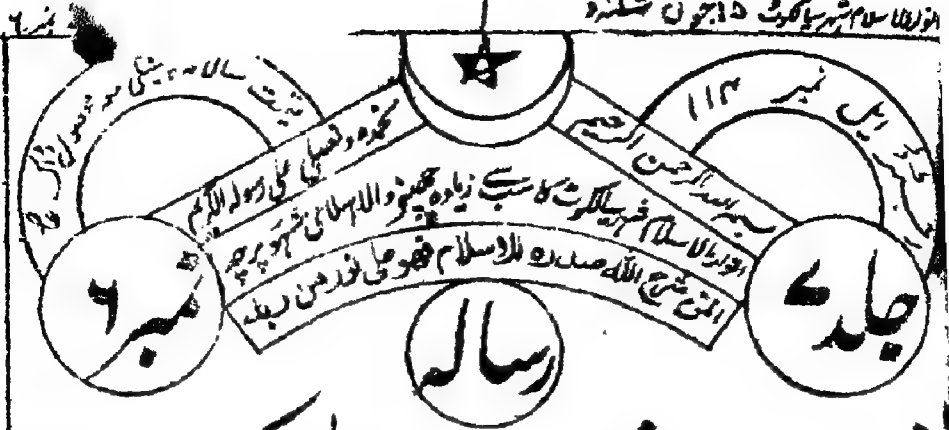 انوارالاسلام شہر سیالکوٹ ۱۵ جون
نمبر ۶
رجسٹرڈ ایل نمبر ۱۱۴
قیمت سالانہ پیشگی مع محصول ڈاک
بسم اللہ الرحمن الرحیم
نحمدہ و نصلی علی رسولہ الکریم
انوارالاسلام شہر سیالکوٹ کا سب سے زیادہ چھپنے والا اسلامی پرچہ
افمن شرح اللہ صدرہ للاسلام فھو علی نور من ربہ
جلد ۷
نمبر ۶
رسالہ